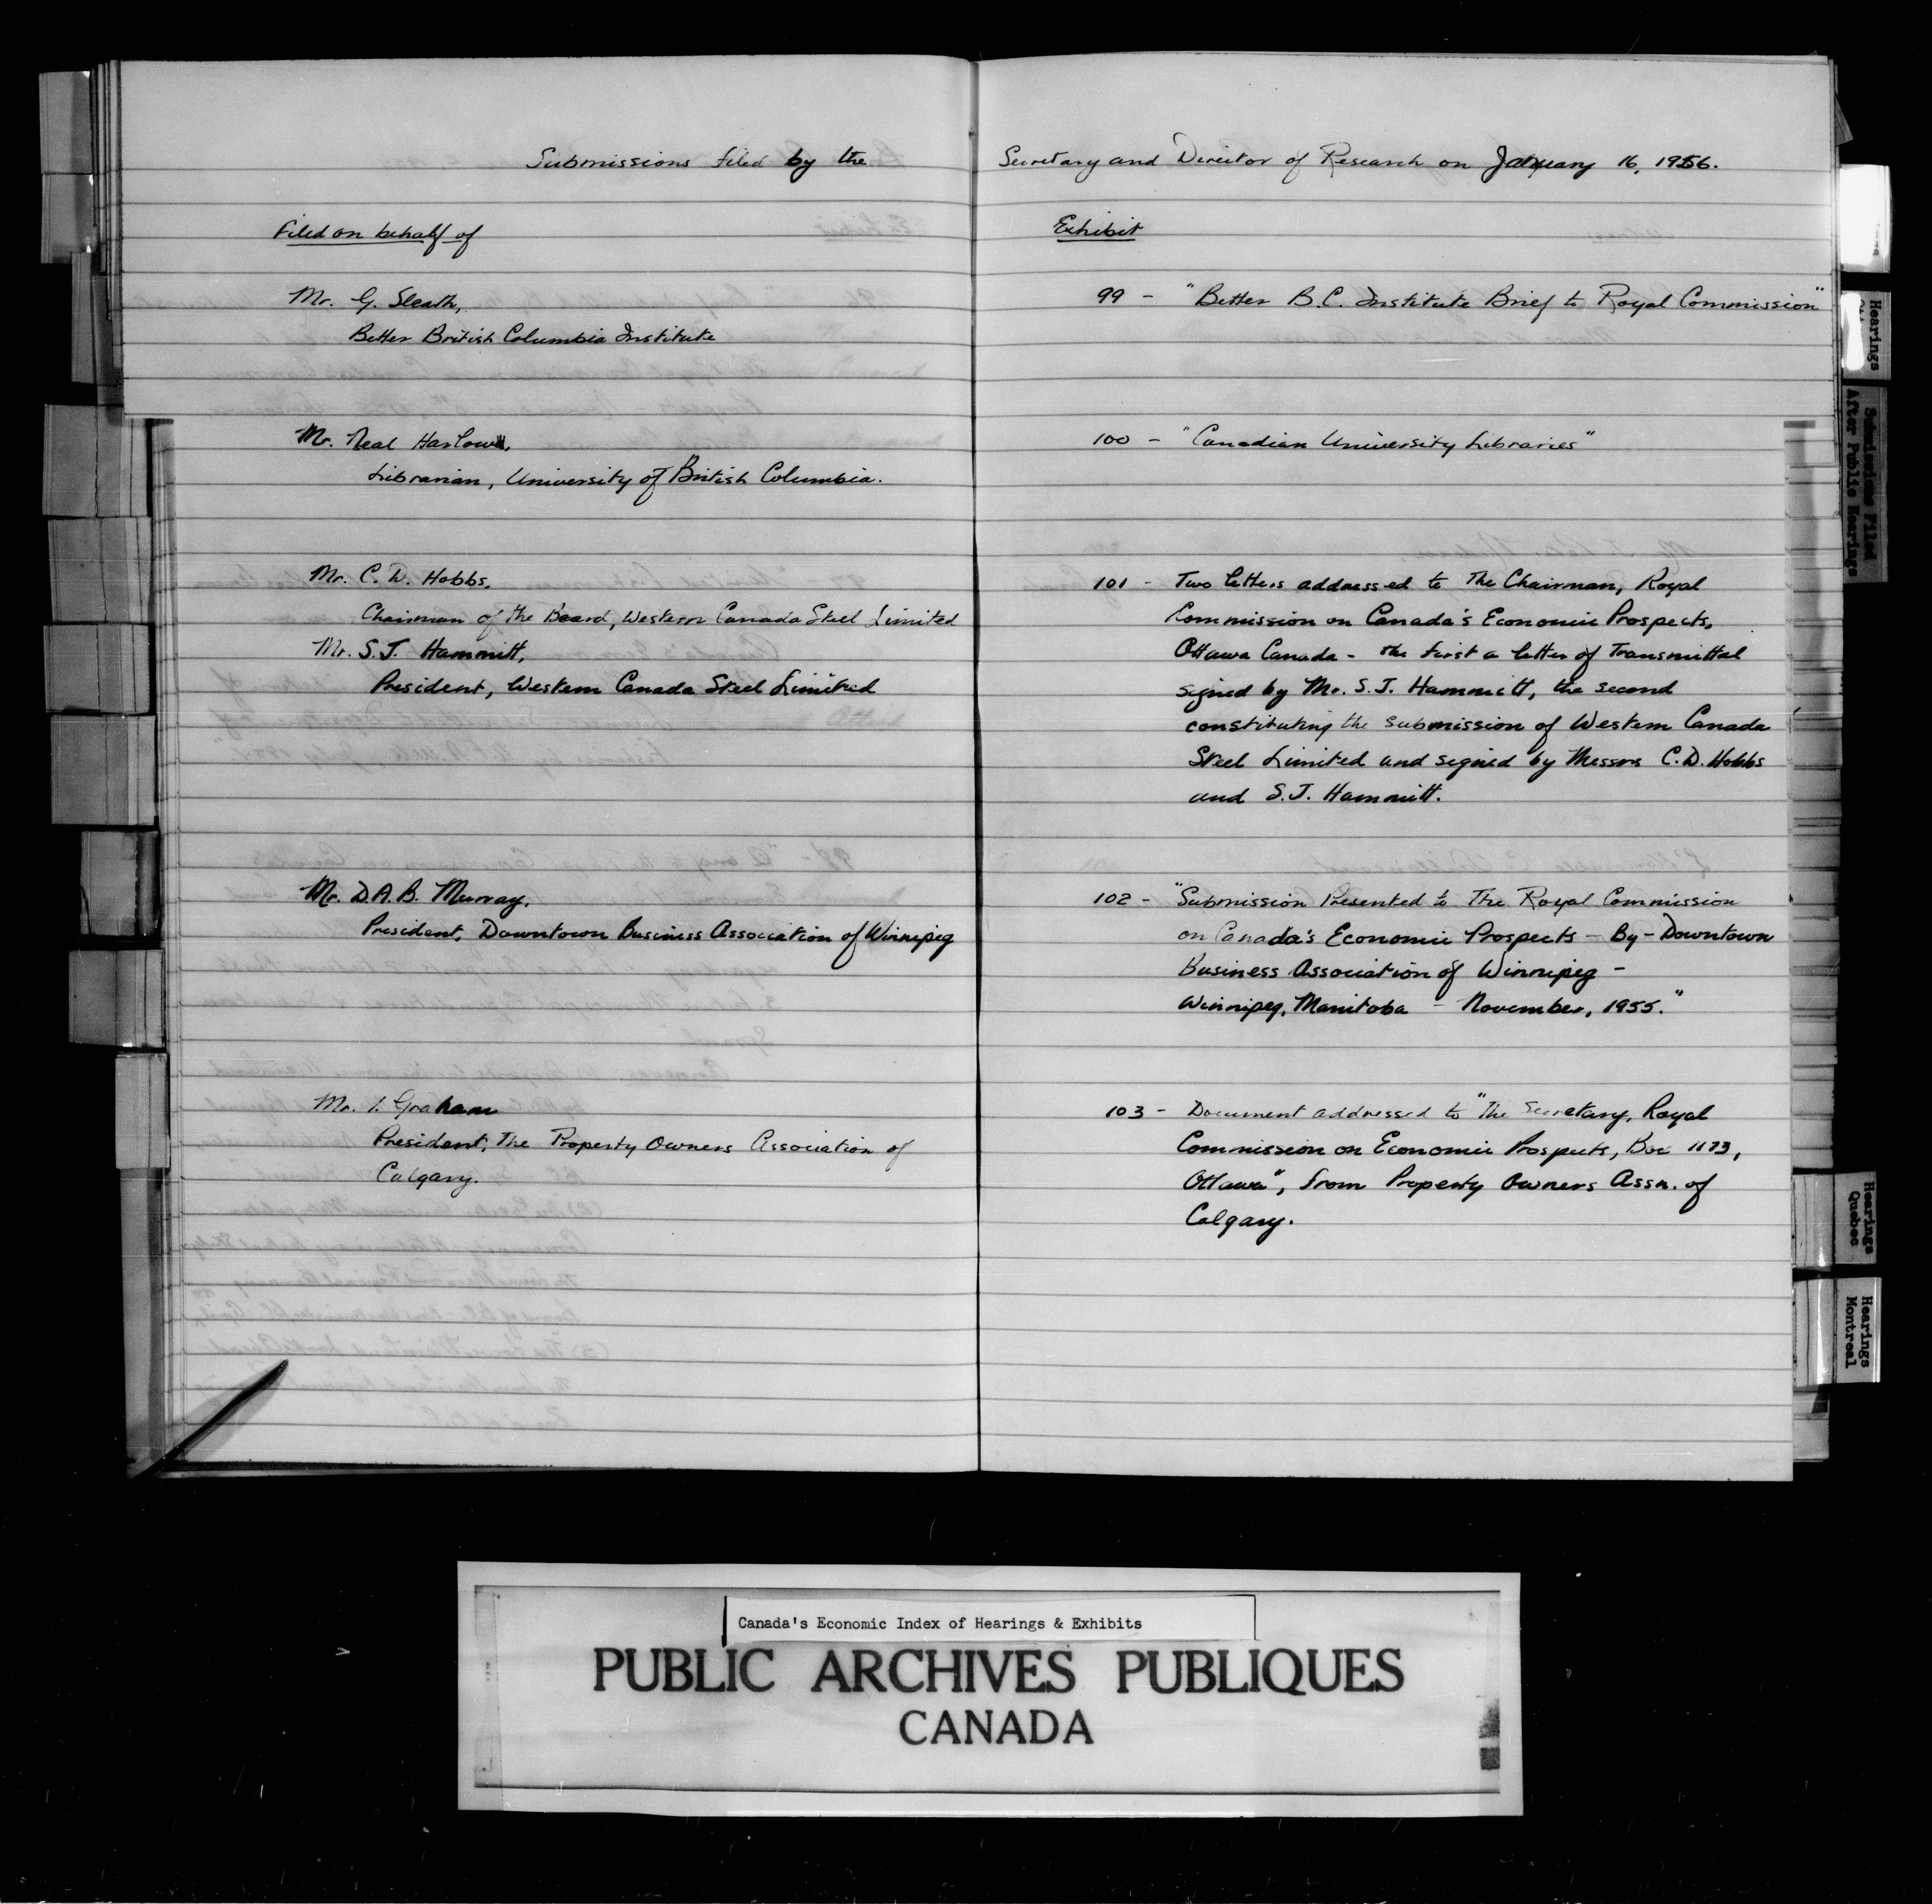 Submissions filed by the Secretary and Director of Research on January 16, 1956.
Filed on behalf of
Exhibit
Mr. G. Sleath,
Better British Columbia Institute
99 - "Better B.C. Institute Brief to Royal Commission"
Mr. Neal Harlow,
Librarian, University of British Columbia.
100 - "Canadian University Libraries"
Mr. C. D. Hobbs,
Chairman of the Board, Western Canada Steel Limited
Mr. S.J. Hammitt,
President, Western Canada Steel Limited
101 - Two letters addressed to The Chairman, Royal
Commission on Canada's Economic Prospects,
Ottawa Canada - the first a letter of Transmittal
signed by Mr. S.J. Hammitt, the second
constituting the submission of Western Canada
Steel Limited and signed by Messrs C.D. Hobbs
and S.J. Hammitt.
Mr. D.A.B. Murray,
President, Downtown Business Association of Winnipeg
102 - "Submission Presented to The Royal Commission
on Canada's Economic Prospects - By - Downtown
Business Association of Winnipeg -
Winnipeg, Manitoba - November, 1955."
Mr. I. Graham
President, The Property Owners Association of
Calgary.
103 - Document addressed to "The Secretary, Royal
Commission on Economic Prospects, Box 1173,
Ottawa", from Property Owners Assn. of
Calgary.
Hearings
Submissions Filed
After Public Hearings
Hearings
Quebec
Hearings
Montreal
Canada's Economic Index of Hearings & Exhibits
PUBLIC ARCHIVES PUBLIQUES
CANADA